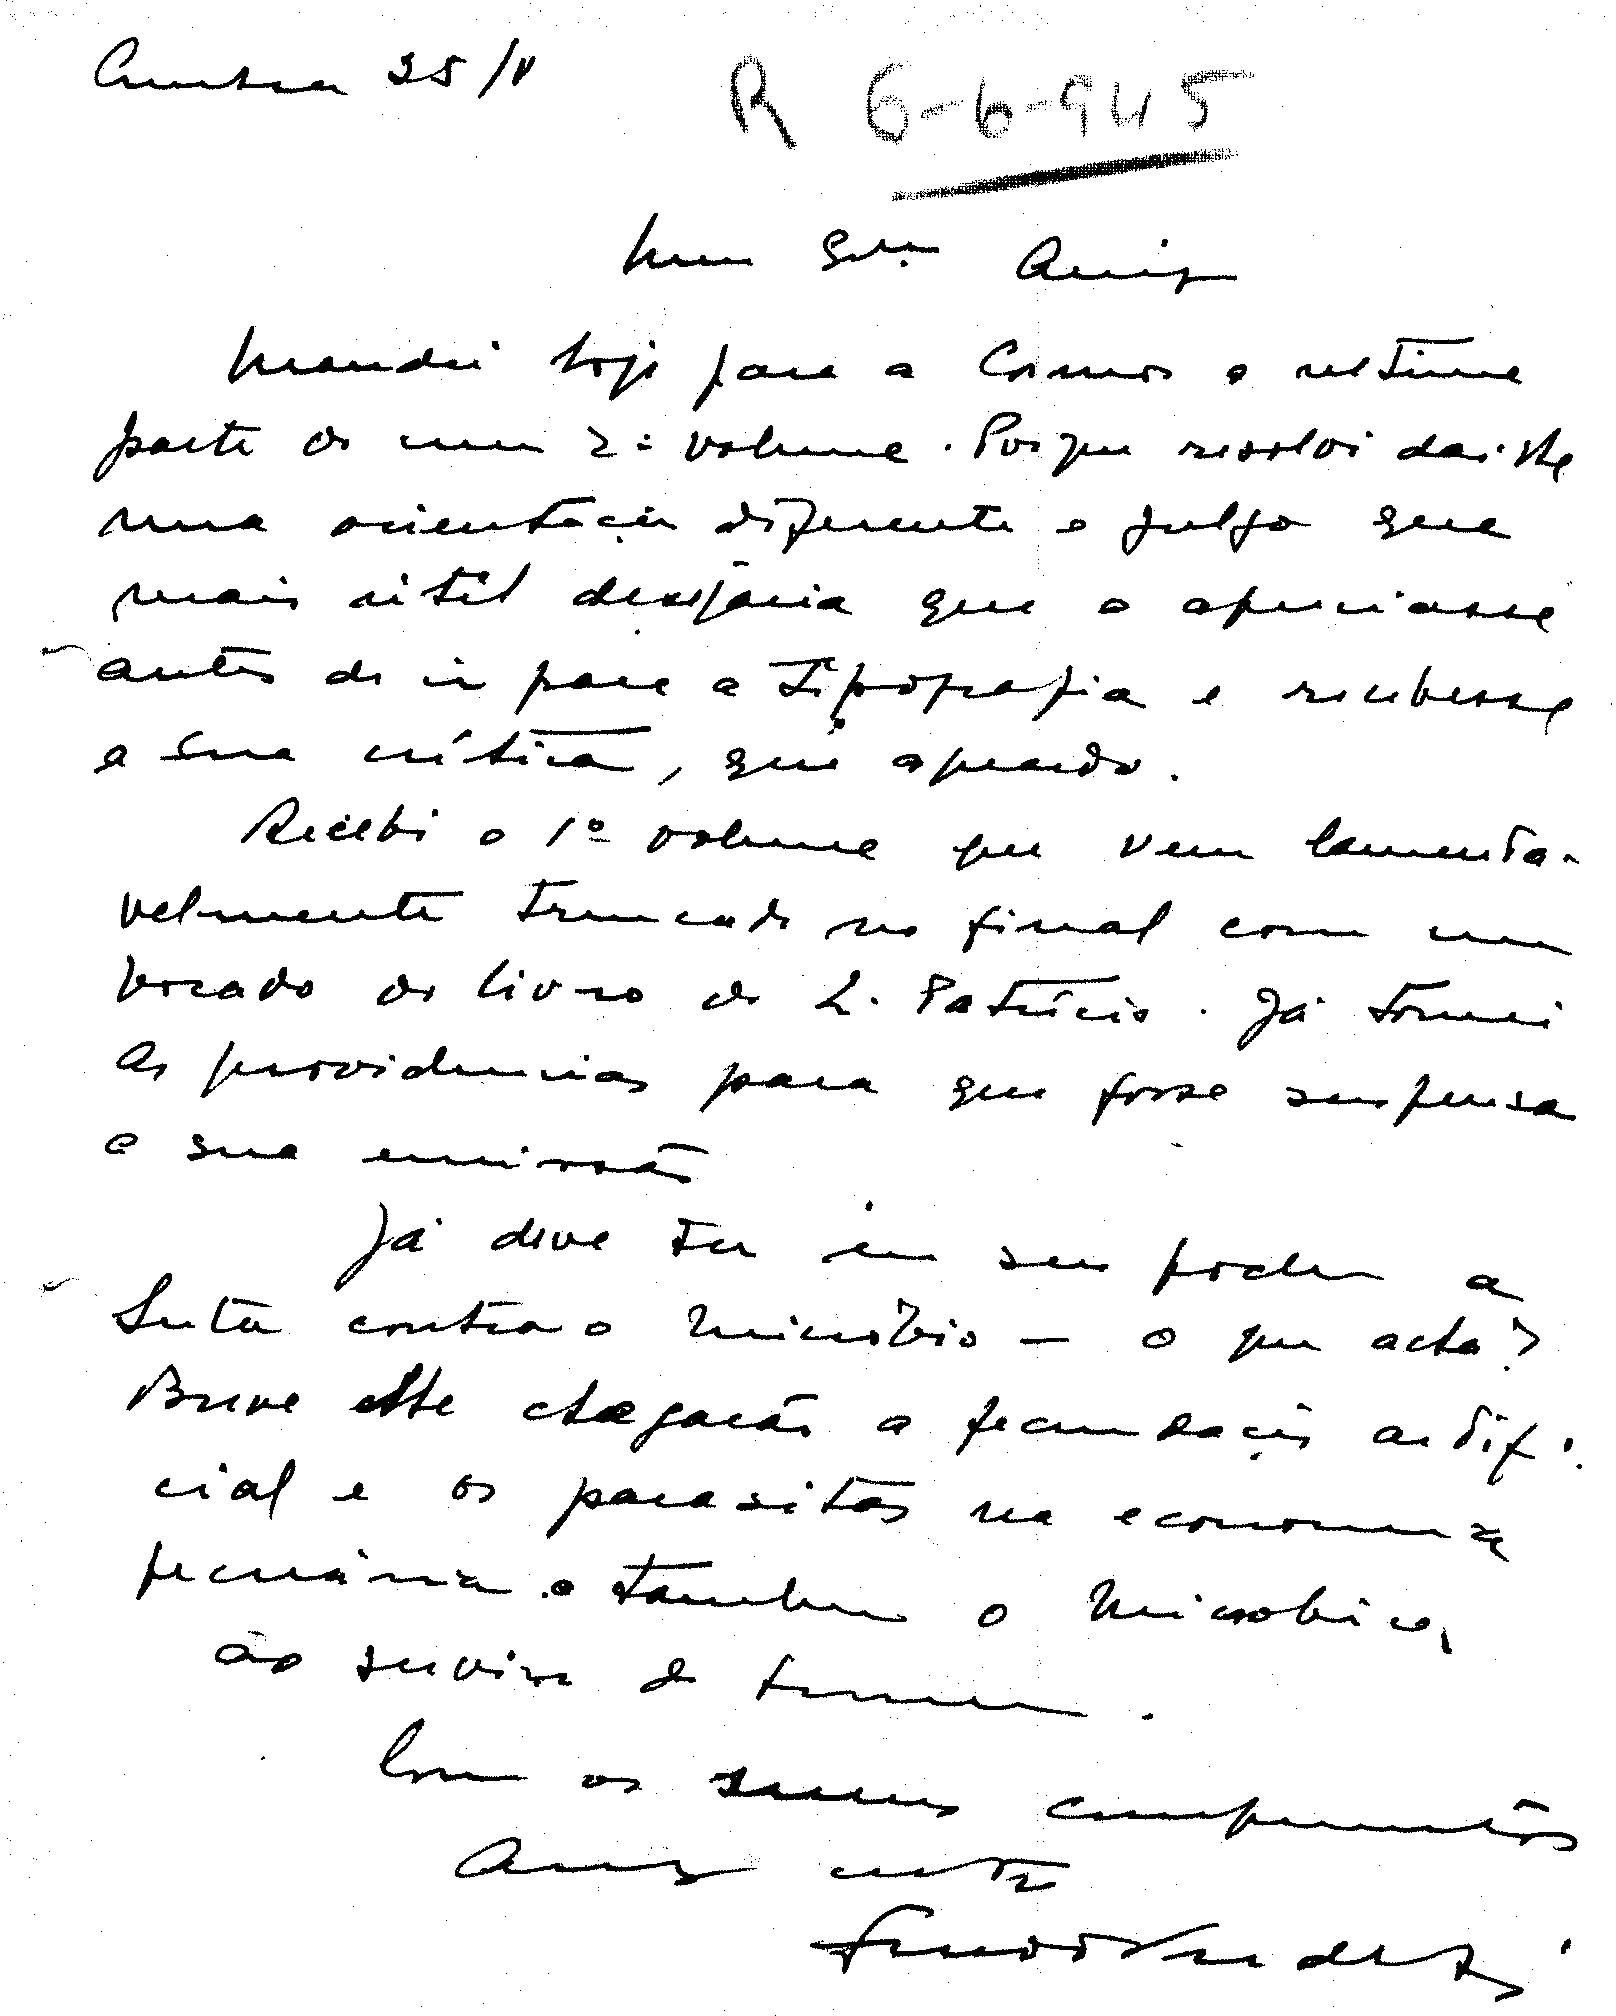 25/V
R 6-6-945
Meu Amigo
Mandei hoje para a Cosmos a ultima
parte do meu 2º volume. Porque resolvi dar-lhe
uma orientação diferente e julgo que
mais útil desejaria que o apreciasse
antes de ir para a tipografia e recebesse
a sua crítica, que aguardo.
Recebi o 1º volume que vem lamenta-
velmente truncado no final com um
bocado do livro do L. Patrício. Já tomei
as providencias para que fosse suspensa
a sua emissão
Já deve ter em seu poder a
Luta contra o Micróbio — o que acha?
Breve lhe chegarão a fecundação artifi-
cial e os parasitas na economia
pecuária e tambem o Microbio,
ao serviço do homem.
Com os meus cumprimentos
Amigo